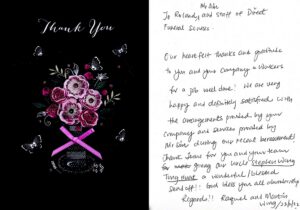 Thank You
Mr Alan
To Rolandy and Staff of Direct
Funeral Services
Our heartfelt thanks and gratitude
to you and your company & workers
for a job well done! We are very
happy and definitely satisfied with
the arrangements provided by your
company and services provided by
Mr during our recent bereavement
Thank you for you and your team
for giving our loved
a wonderful / blessed
Send off!! God bless you all abundantly
Regards!! Raquel and Martin